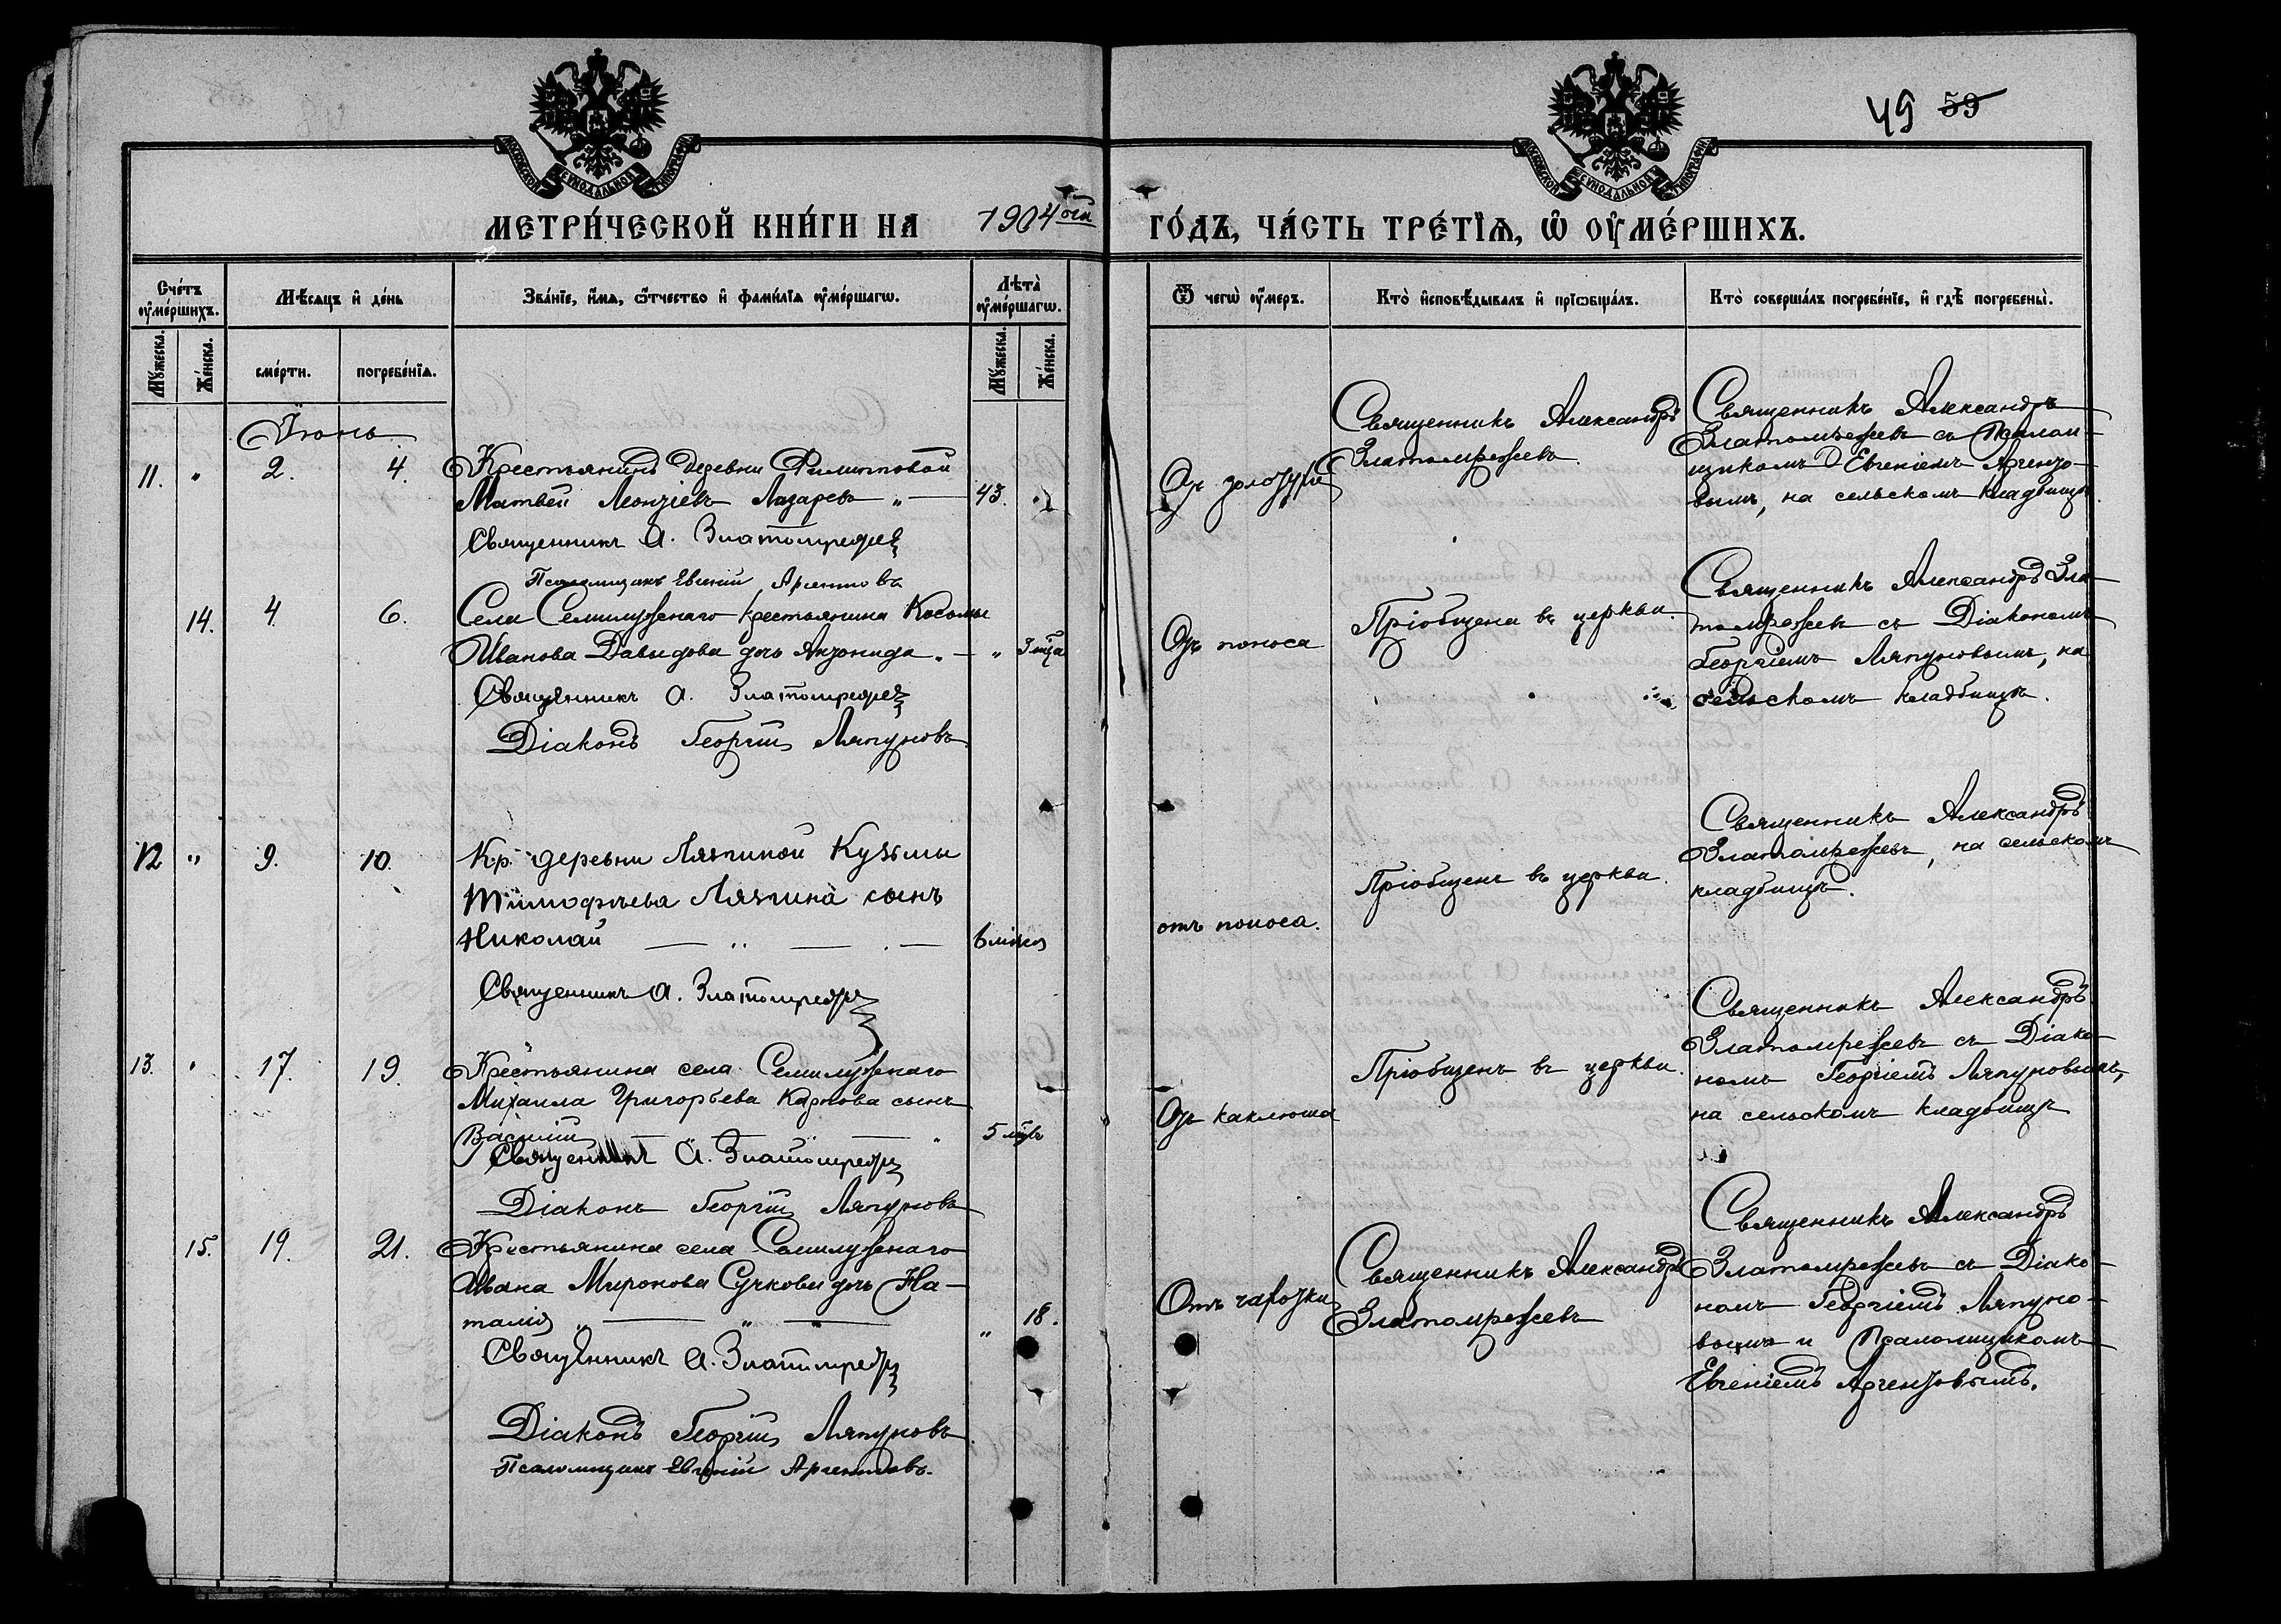 49 59
МОСКОВСКОЙ СѴНОДАЛЬНОЙ ТИПОГРАФІИ
МОСКОВСКОЙ СѴНОДАЛЬНОЙ ТИПОГРАФІИ
МЕТРИ́ЧЕСКОЙ КНИ́ГИ НА 1904 ГО́ДЪ, ЧА́СТЬ ТРЕ́ТІѦ, Ѡ҆ ОУ҆МЕ́РШИХЪ.
Сче́тъ оу҆ме́ршихъ.
Мꙋ́жеска.
Же́нска.
Мѣ́сяцъ и҆ де́нь
сме́рти.
погребе́нїѧ.
Зва́нїе, и҆́мѧ, ѻ҆́тчество и҆ фами́лїѧ оу҆ме́ршагѡ.
Лѣта̀ оу҆ме́ршагѡ.
Мꙋ́жеска.
Же́нска.
Ѿ чегѡ̀ оу҆́меръ.
Кто̀ и҆сповѣ́дывалъ и҆ прїѡбща́лъ.
Кто̀ соверша́лъ погребе́нїе, и҆ гдѣ̀ погребены̀.
Іюнь
11. " 2. 4.
Крестьянинъ деревни Филипповой
Матвей Леонтіевъ Лазаревъ " — 43. "
Священникъ А. Златомрежев
Псаломщикъ Евгений Аргентовъ
Отъ золотухи
Священникъ Александръ
Златомрежевъ.
Священникъ Александръ
Златомрежевъ съ Псалом-
щикомъ Евгеніемъ Аргенто-
вымъ, на сельскомъ кладбищѣ.
14. 4. 6.
Села Семилужснаго крестьянина Косьмы
Иванова Давыдова дочь Антонида " — "
Священникъ А. Златомрежев
Діаконъ Георгій Ляпуновъ
Отъ поноса
Пріобщена въ церкви.
Священникъ Александръ Зла-
томрежевъ съ Діакономъ
Георгіемъ Ляпуновымъ, на
сельскомъ кладбищѣ.
12 " 9. 10.
Кр. деревни Ляпиной Кузьмы
Тимофѣева Ляпина сынъ
Николай — " — . — 6
Священникъ А. Златомрежев
отъ поноса.
Пріобщенъ въ церкви.
Священникъ Александръ
Златомрежевъ, на сельскомъ
кладбищѣ.
13. " 17. 19.
Крестьянина села Семилужснаго
Михаила Григорьева Карпова сынъ
Василій — " — " 5
Священникъ А. Златомрежев
Діаконъ Георгій Ляпуновъ
Отъ каклюша
Пріобщенъ въ церкви.
Священникъ Александръ
Златомрежевъ съ Діако-
номъ Георгіемъ Ляпуновымъ,
на сельскомъ кладбищѣ
15. 19. 21.
Крестьянина села Семилужснаго
Ивана Миронова Сучкова дочь На-
талія " — " " — " 18.
Священникъ А. Златомрежев
Діаконъ Георгій Ляпуновъ
Псаломщикъ Евгений Аргентовъ.
Отъ чахотки
Священникъ Александръ
Златомрежевъ
Священникъ Александръ
Златомрежевъ съ Діако-
номъ Георгіемъ Ляпуно-
вымъ и Псаломщикомъ
Евгеніемъ Аргентовымъ.